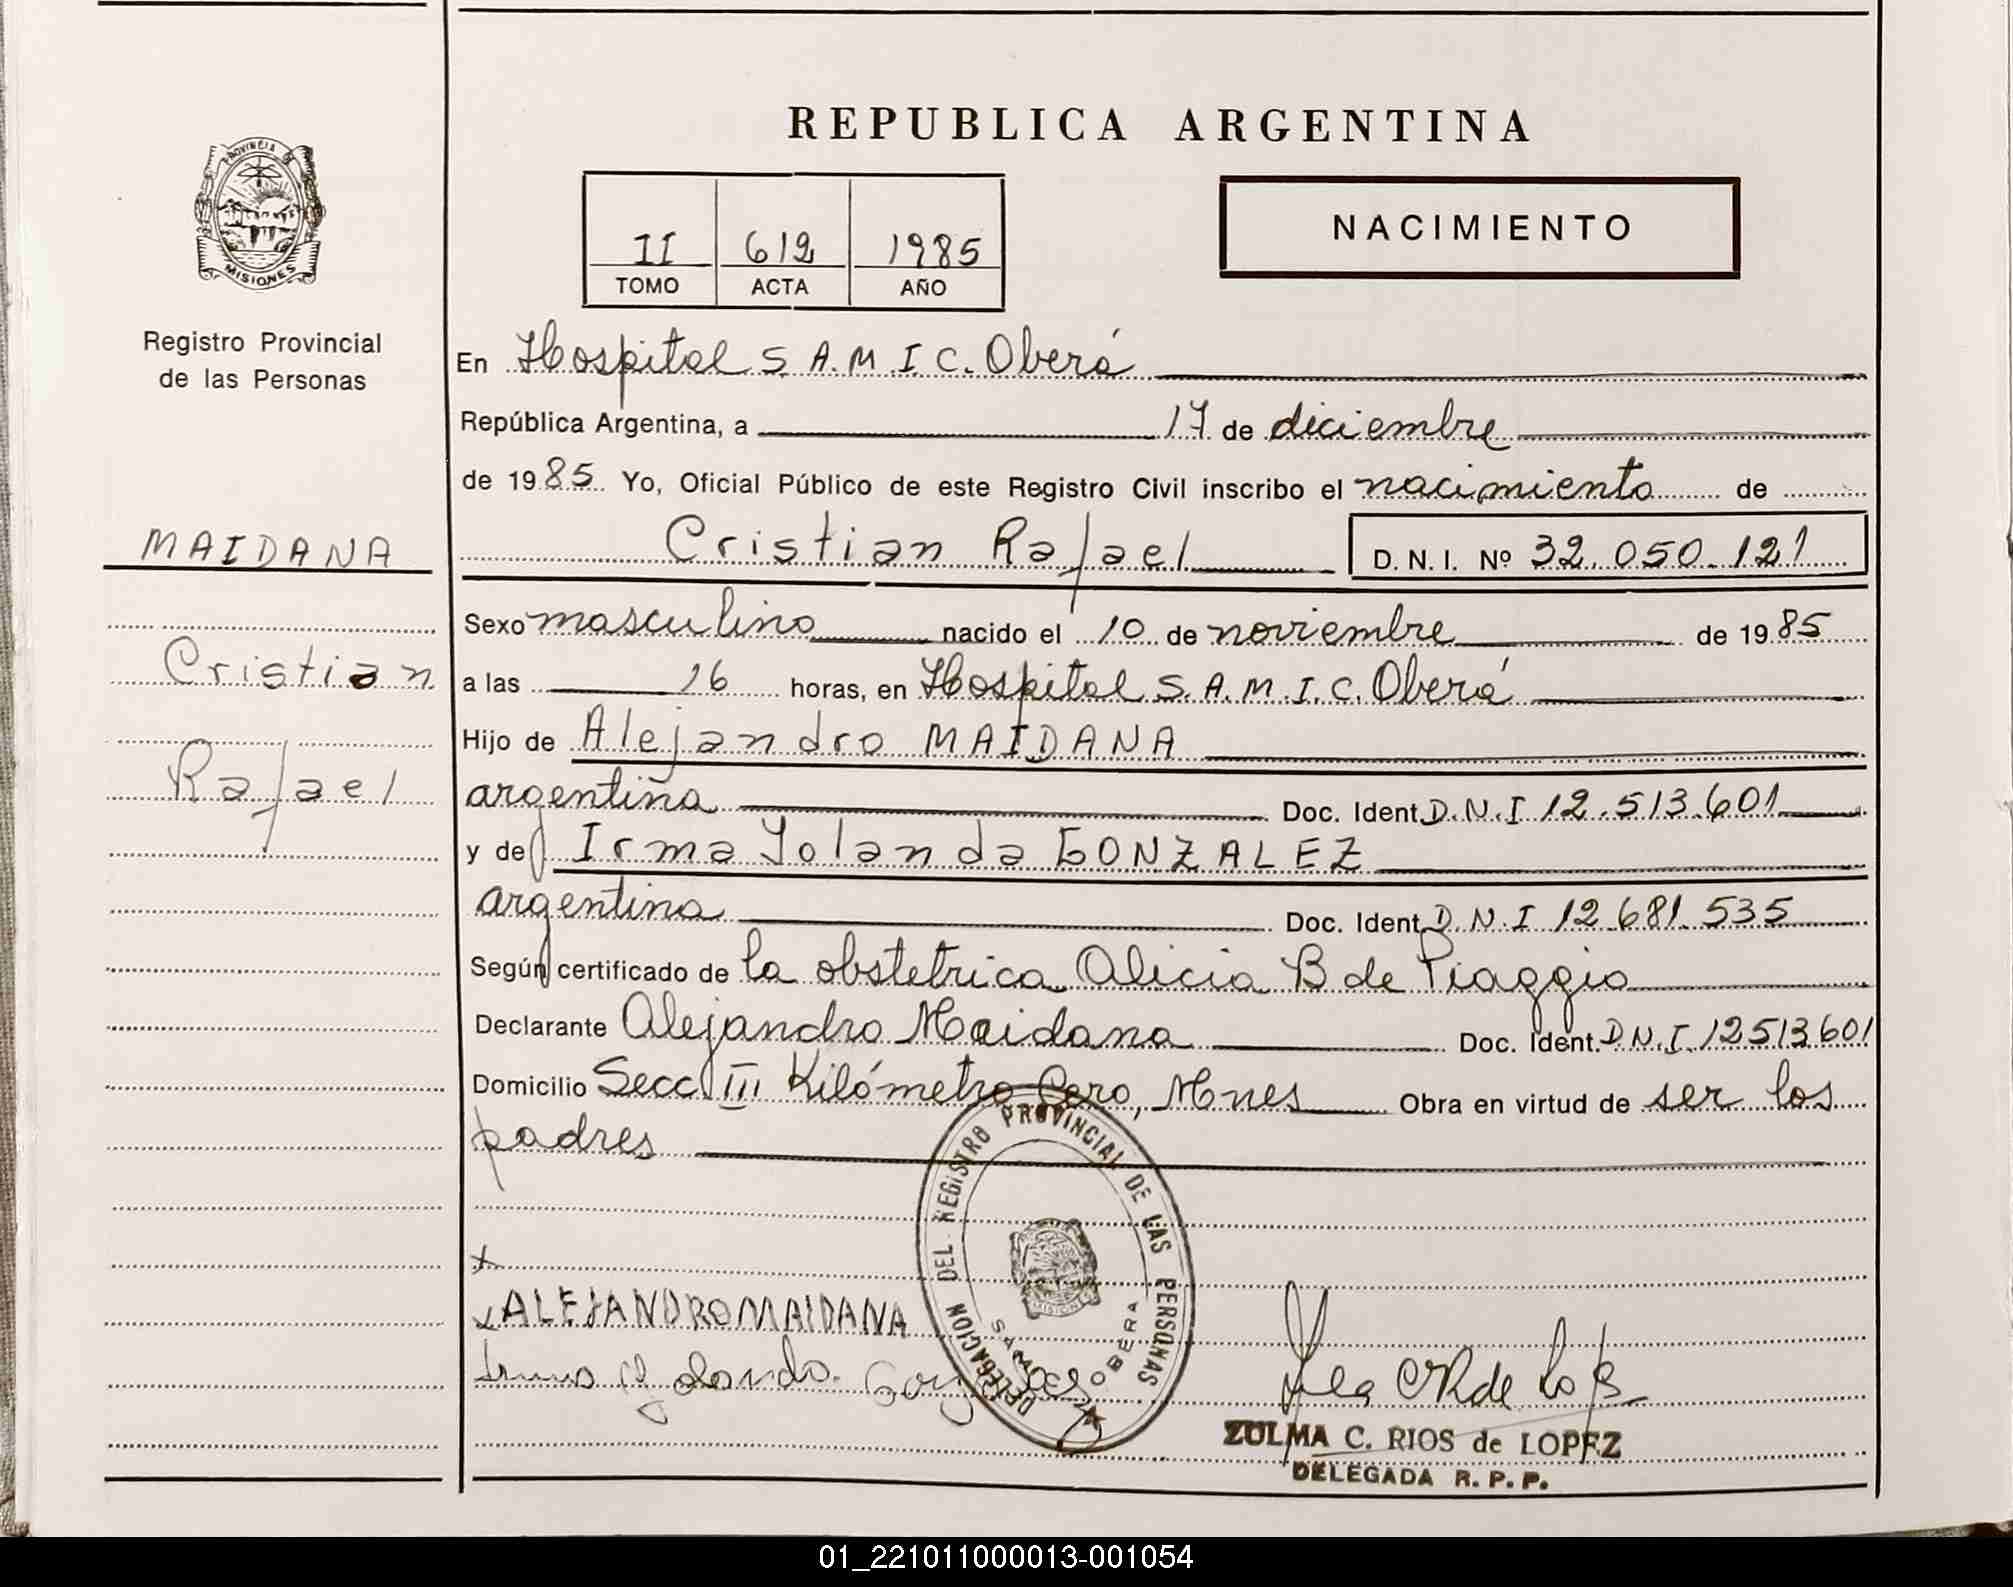 REPUBLICA ARGENTINA
PROVINCIA DE
MISIONES
Registro Provincial
de las Personas
II 612 1985
TOMO ACTA AÑO
NACIMIENTO
En Hospital S.A.M.I.C. Oberá
República Argentina, a 17 de diciembre
de 1985 Yo, Oficial Público de este Registro Civil inscribo el nacimiento de
Cristian Rafael D. N. I. Nº 32.050.121
MAIDANA
Cristian
Rafael
Sexo masculino nacido el 10 de noviembre de 1985
a las 16 horas, en Hospital S.A.M.I.C. Oberá
Hijo de Alejandro MAIDANA
argentina Doc. Ident. D.N.I 12.513.601
y de Irma Yolanda GONZALEZ
argentina Doc. Ident. D.N.I 12.681.535
Según certificado de la obstetrica Alicia B de Piaggio
Declarante Alejandro Maidana Doc. Ident. D.N.I. 12513601
Domicilio Secc III Kilómetro Cero, Mnes Obra en virtud de ser los
padres
DELEGACION DEL REGISTRO PROVINCIAL DE LAS PERSONAS
MISIONES
OBERA
x
x ALEJANDRO MAIDANA
ZULMA C. RIOS de LOPEZ
DELEGADA R. P. P.
01_221011000013-001054